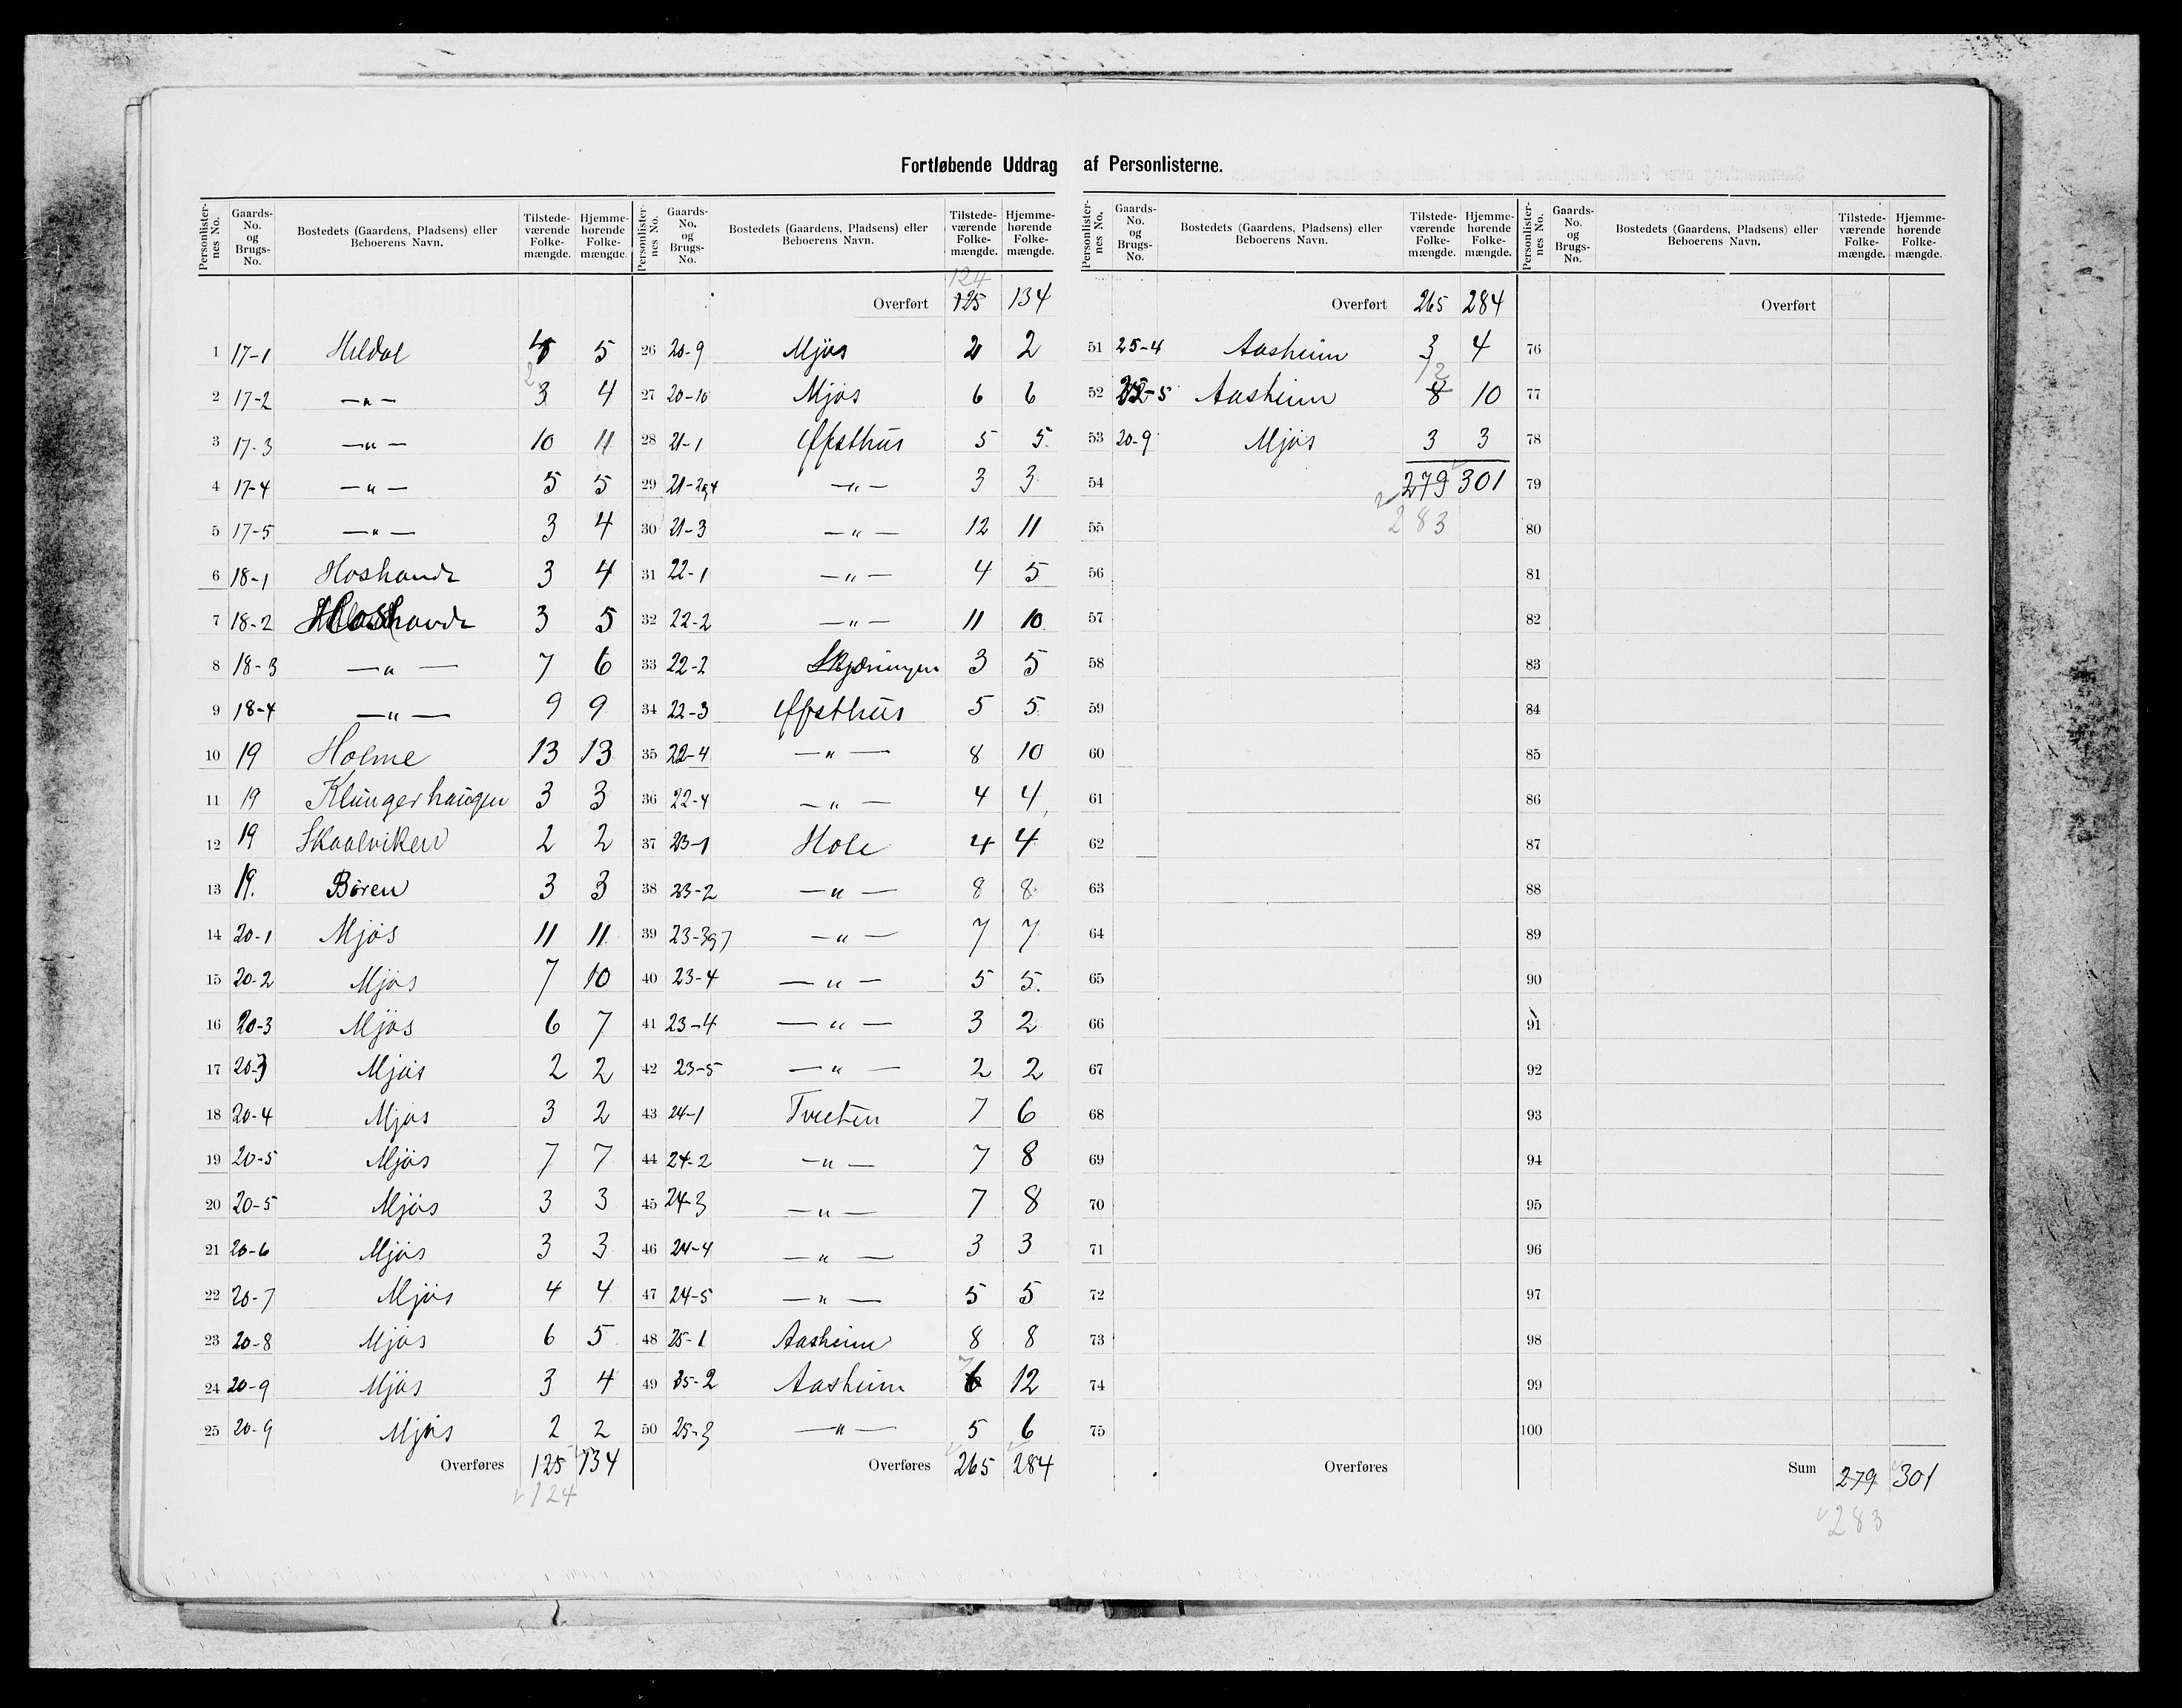 Fortløbende Uddrag af Personlisterne.
Personlisternes No. Gaards-No. og Brugs-No. Bostedets (Gaardens, Pladsens) eller Beboerens Navn. Tilstedeværende Folkemængde. Hjemmehørende Folkemængde.
1 17-1 Hildal 5
2 17-2 —„— 2 3 4
3 17-3 —„— 10 11
4 17-4 —„— 5 5
5 17-5 —„— 3 4
6 18-1 3 4
7 18-2 3 5
8 18-3 —„— 7 6
9 18-4 —„— 9 9
10 19 Holme 13 13
11 19 Klungerhaugen 3 3
12 19 Skaalviken 2 2
13 19. Bören 3 3
14 20-1 Mjös 11 11
15 20-2 Mjös 7 10
16 20-3 Mjös 6 7
17 20-3 Mjös 2 2
18 20-4 Mjøs 3 2
19 20-5 Mjös 7 7
20 20-5 Mjös 3 3
21 20-6 Mjös 3 3
22 20-7 Mjös 4 4
23 20-8 Mjös 6 5
24 20-9 Mjös 3 4
25 20-9 Mjös 2 2
Overføres 125 134
124
Personlisternes No. Gaards-No. og Brugs-No. Bostedets (Gaardens, Pladsens) eller Beboerens Navn. Tilstedeværende Folkemængde. Hjemmehørende Folkemængde.
124
Overført 125 134
26 20-9 Mjös 2 2
27 20-10 Mjös 6 6
28 21-1 Øfsthus 5 5
29 21-2,4 —„— 3 3
30 21-3 —„— 12 11
31 22-1 —„— 4 5
32 22-2 —„— 11 10
33 22-2 3 5
34 22-3 Øfsthus 5 5
35 22-4 —„— 8 10
36 22-4 —„— 4 4
37 23-1 Hole 4 4
38 23-2 —„— 8 8
39 23-3og7 —„— 7 7
40 23-4 —„— 5 5
41 23-4 —„— 3 2
42 23-5 —„— 2 2
43 24-1 Tveten 7 6
44 24-2 —„— 7 8
45 24-3 —„— 7 8
46 24-4 —„— 3 3
47 24-5 —„— 5 5
48 25-1 Aasheim 8 8
49 25-2 Aasheim 7 6 12
50 25-3 —„— 5 6
Overføres 265 284
Personlisternes No. Gaards-No. og Brugs-No. Bostedets (Gaardens, Pladsens) eller Beboerens Navn. Tilstedeværende Folkemængde. Hjemmehørende Folkemængde.
Overført 265 284
51 25-4 Aasheim 3 4
52 25-5 Aasheim 12 8 10
53 20-9 Mjös 3 3
54 279 301
55 283
56
57
58
59
60
61
62
63
64
65
66
67
68
69
70
71
72
73
74
75
Overføres
Personlisternes No. Gaards-No. og Brugs-No. Bostedets (Gaardens, Pladsens) eller Beboerens Navn. Tilstedeværende Folkemængde. Hjemmehørende Folkemængde.
Overført
76
77
78
79
80
81
82
83
84
85
86
87
88
89
90
91
92
93
94
95
96
97
98
99
100
Sum 279 301
283